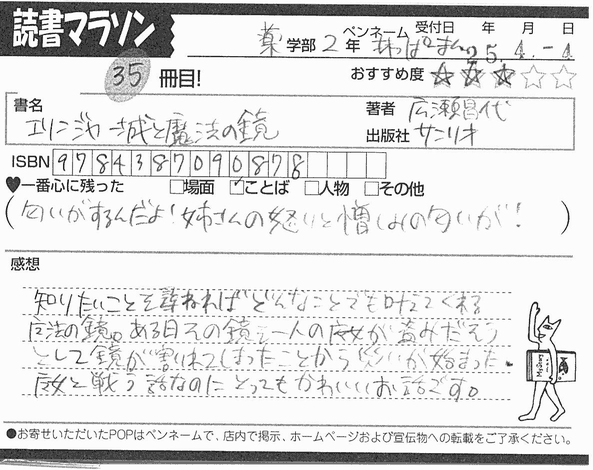 読書マラソン
薬学部 2年 ペンネーム
受付日 年 月 日
05.4.-4
35冊目!
おすすめ度 ★★★☆☆
書名
エリンジャ城と魔法の鏡
著者 広瀬昌代
出版社 サンリオ
ISBN 9784387090878
♥一番心に残った □場面 ☑ことば □人物 □その他
(匂いがするんだよ!姉さんの怒りと憎しみの匂いが!)
感想
知りたいことを尋ねればどんなことでも叶えてくれる
魔法の鏡。ある日その鏡を一人の魔女が盗みだそう
として鏡が割れてしまったことから災いが始まった。
魔女と戦う話なのにとってもかわいいお話です。
●お寄せいただいたPOPはペンネームで、店内で掲示、ホームページおよび宣伝物への転載をご了承ください。